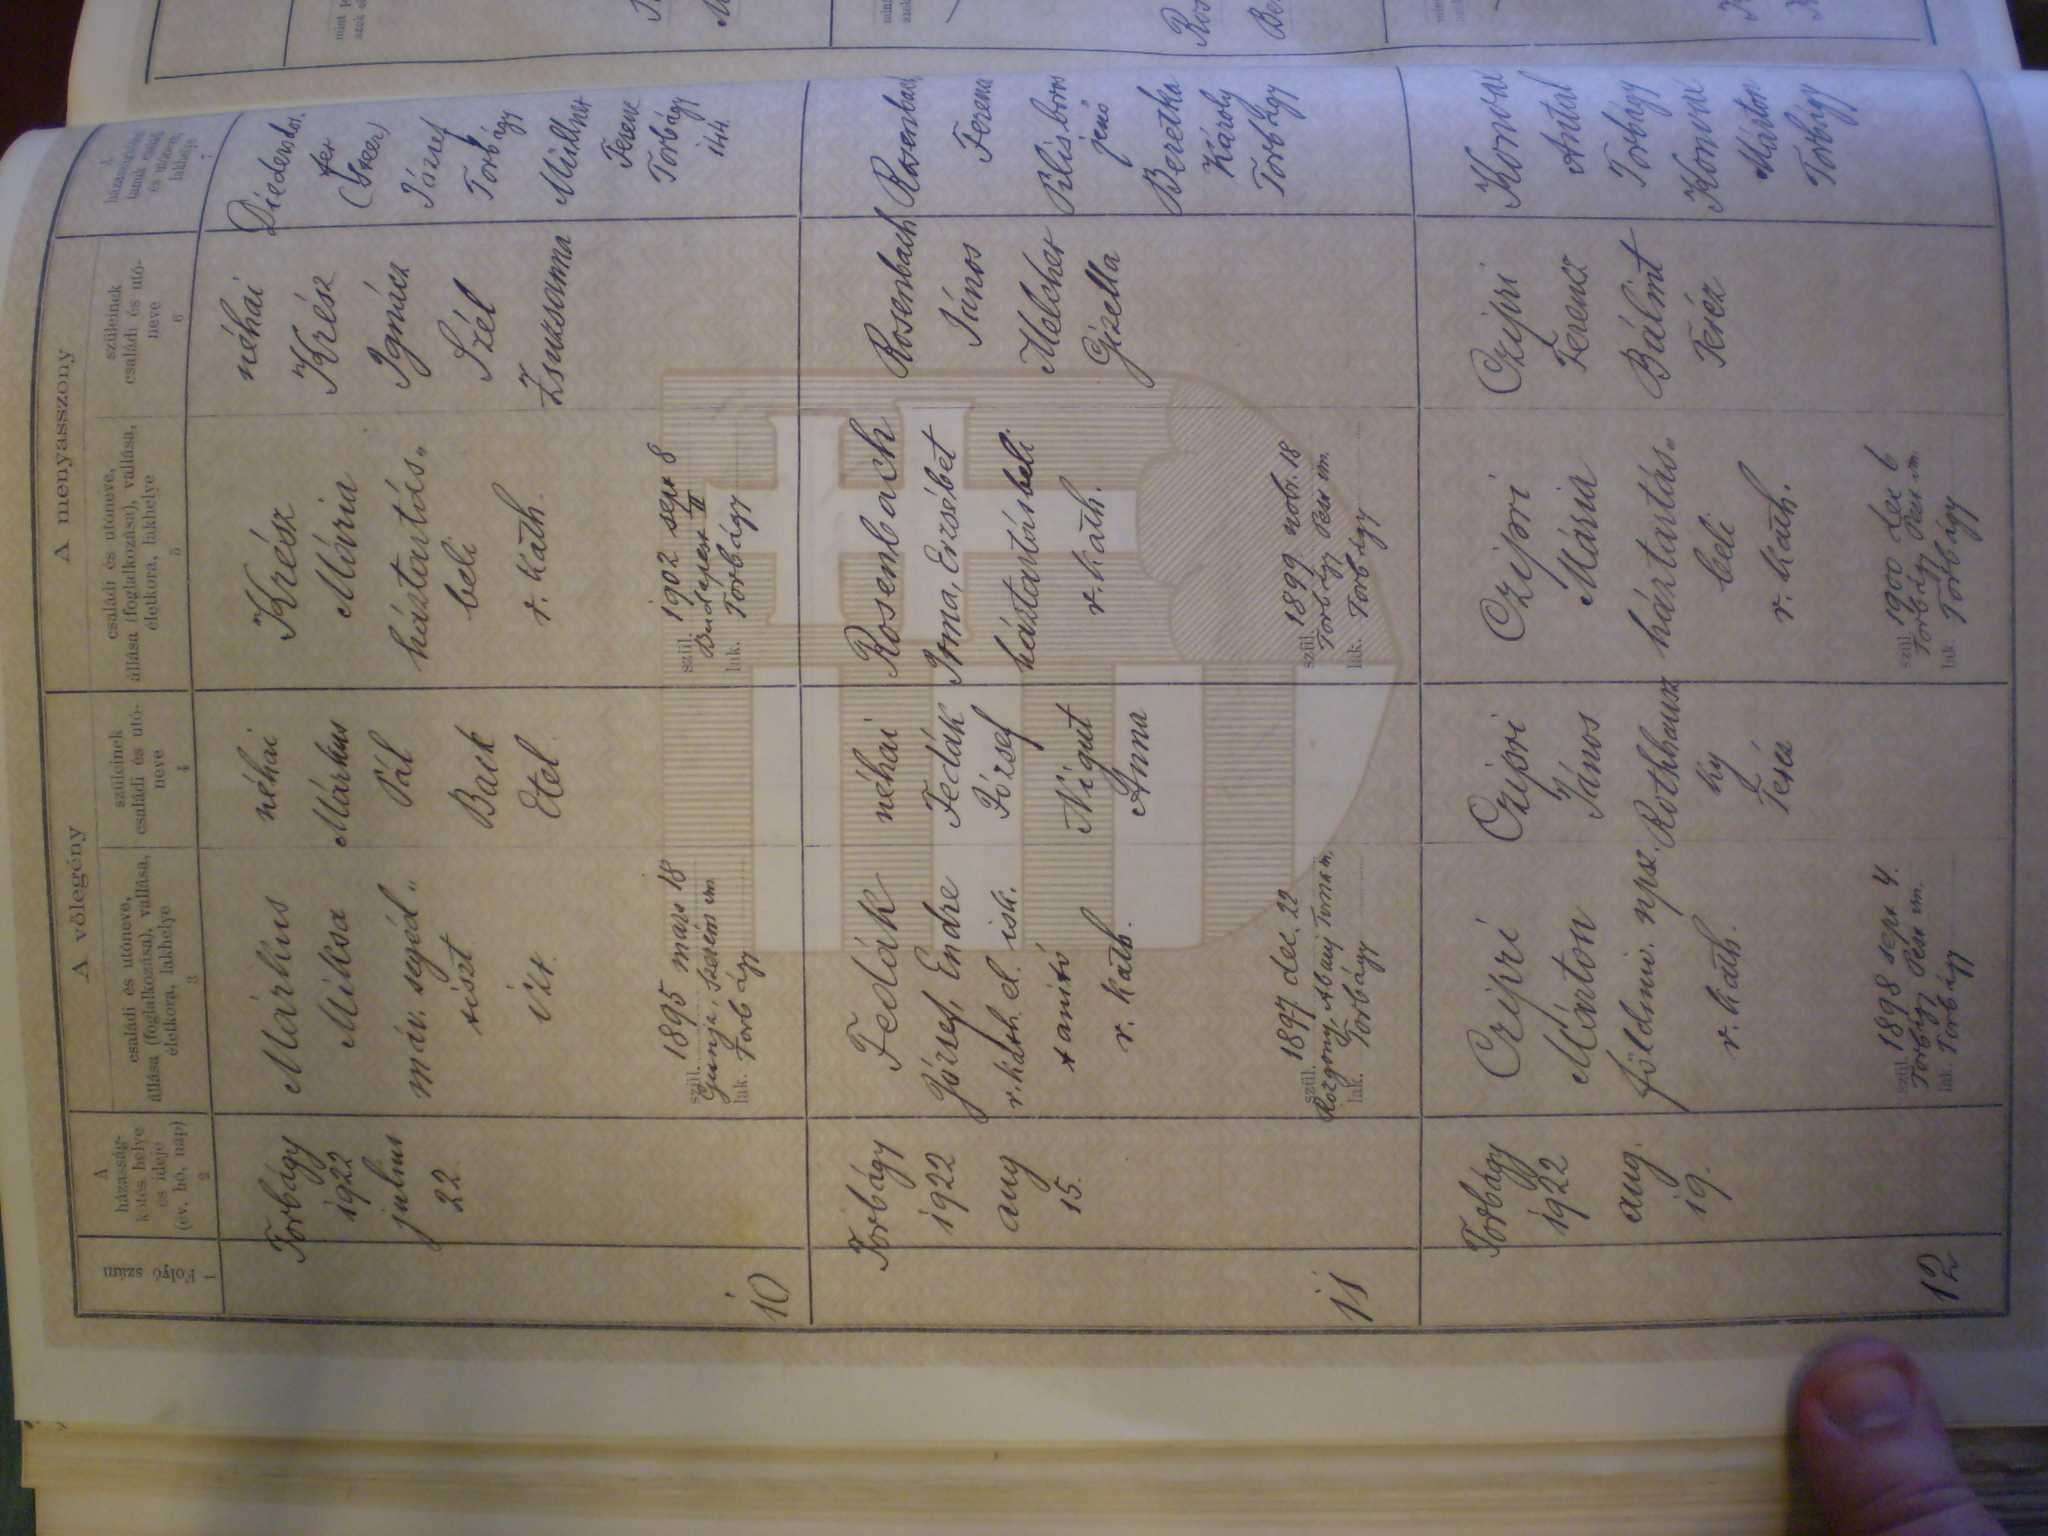 A vőlegény
A menyasszony
1
Folyó szám
A
házasság-
kötés helye
és ideje
(év, hó, nap)
2
családi és utóneve,
állása (foglalkozása), vallása,
életkora, lakhelye
3
szüleinek
családi és utó-
neve
4
családi és utóneve,
állása (foglalkozása), vallása,
életkora, lakhelye
5
szüleinek
családi és utó-
neve
6
házassági
tanuk családi
és utóneve,
lakhelye
7
10
Torbágy
1922
julius
22.
Márkus
Miksa
máv. segéd„
tiszt
izr.
szül. 1895 mars 18
Gunja, Szerém vm
lak. Torbágy
néhai
Márkus
Pál
Back
Etel
Krész
Mária
háztartás„
beli
r. kath.
szül. 1902 sept 8
Budapest II
lak. Torbágy
néhai
Krész
Ignácz
Szél
Zsuksanna
József
Torbágy
Müllner
Ferenc
Torbágy
144.
11
Torbágy
1922
aug
15.
Fedák
József, Endre
r. kath. el. isk.
tanító
r. kath.
szül. 1897 dec. 22
Rozgony, Abauj Torna m.
lak. Torbágy
néhai
Fedák
József
Nigut
Anna
Rosenbach
Irma, Erzsébet
háztartásbeli
r. kath.
szül. 1899 nobr. 18
Torbágy Pest vm.
lak. Torbágy
Rosenbach
János
Melcher
Gizella
Rosenbach
Ferenc
Pilisboros
jenő
Beretka
Károly
Torbágy
12
Torbágy
1922
aug.
19.
Czipri
Márton
földmiv. npsz.
r. kath.
szül. 1898 sept 4.
Torbágy Pest vm.
lak. Torbágy
Czipri
János
Rothhausz
ky
Teréz
Czipri
Mária
háztartás„
beli
r. kath.
szül. 1900 dec 6
Torbágy Pest vm.
lak. Torbágy
Czipri
Ferencz
Bálint
Teréz
Antal
Torbágy
Márton
Torbágy